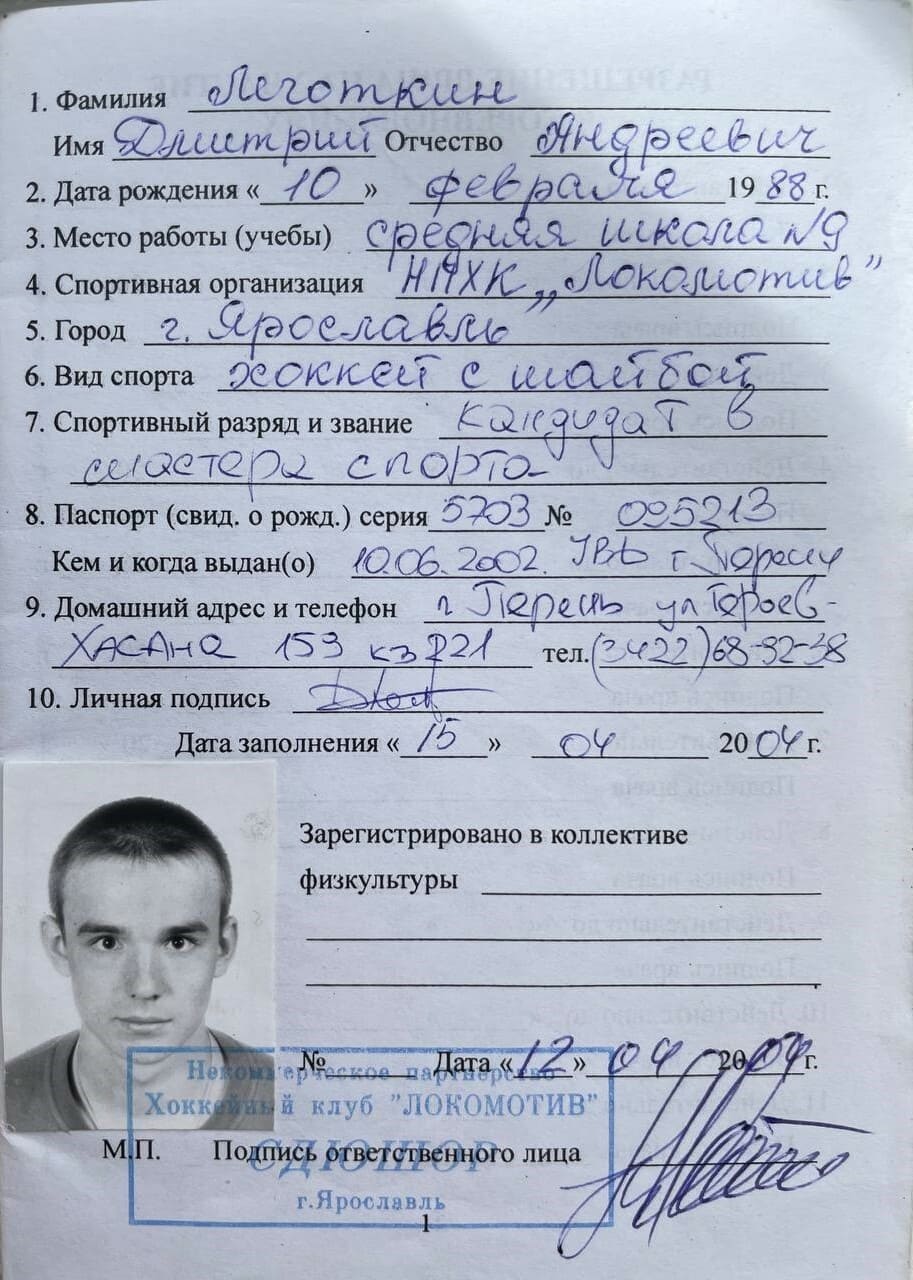 1. Фамилия Леготкин
Имя Дмитрий Отчество Андреевич
2. Дата рождения «10» февраля 1988 г.
3. Место работы (учебы) средняя школа №9
4. Спортивная организация НПХК „Локомотив”
5. Город г. Ярославль
6. Вид спорта хоккей с шайбой
7. Спортивный разряд и звание кандидат в
мастера спорта
8. Паспорт (свид. о рожд.) серия 5703 № 095213
Кем и когда выдан(о) 10.06.2002.
9. Домашний адрес и телефон г Пермь ул Героев-
Хасана 159 тел. (3422) 68-92-38
10. Личная подпись
Дата заполнения «15» 04 2004 г.
Зарегистрировано в коллективе
физкультуры
№ Дата «12» 04 2004 г.
Некоммерческое партнерство
Хоккейный клуб "ЛОКОМОТИВ"
М.П. Подпись ответственного лица
СДЮШОР
г.Ярославль
1